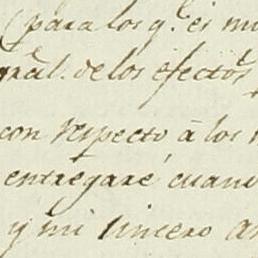 (para los q.e es mi
gral. de los efectos
con respecto à los
entregaré cuan
y mi sincero a